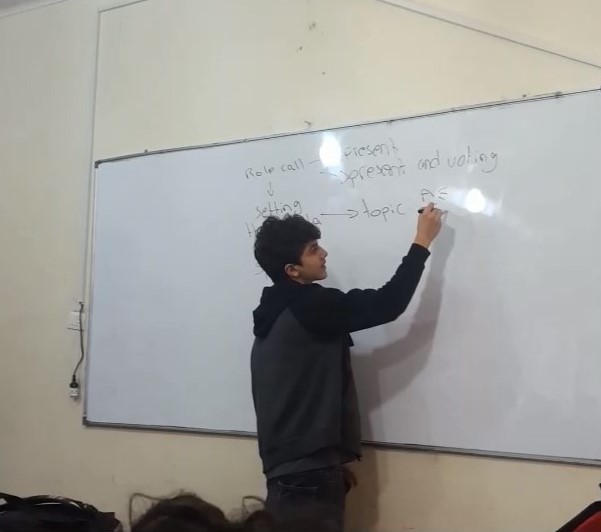 Role call → present
→ present and voting
↓
setting
→ topic A E